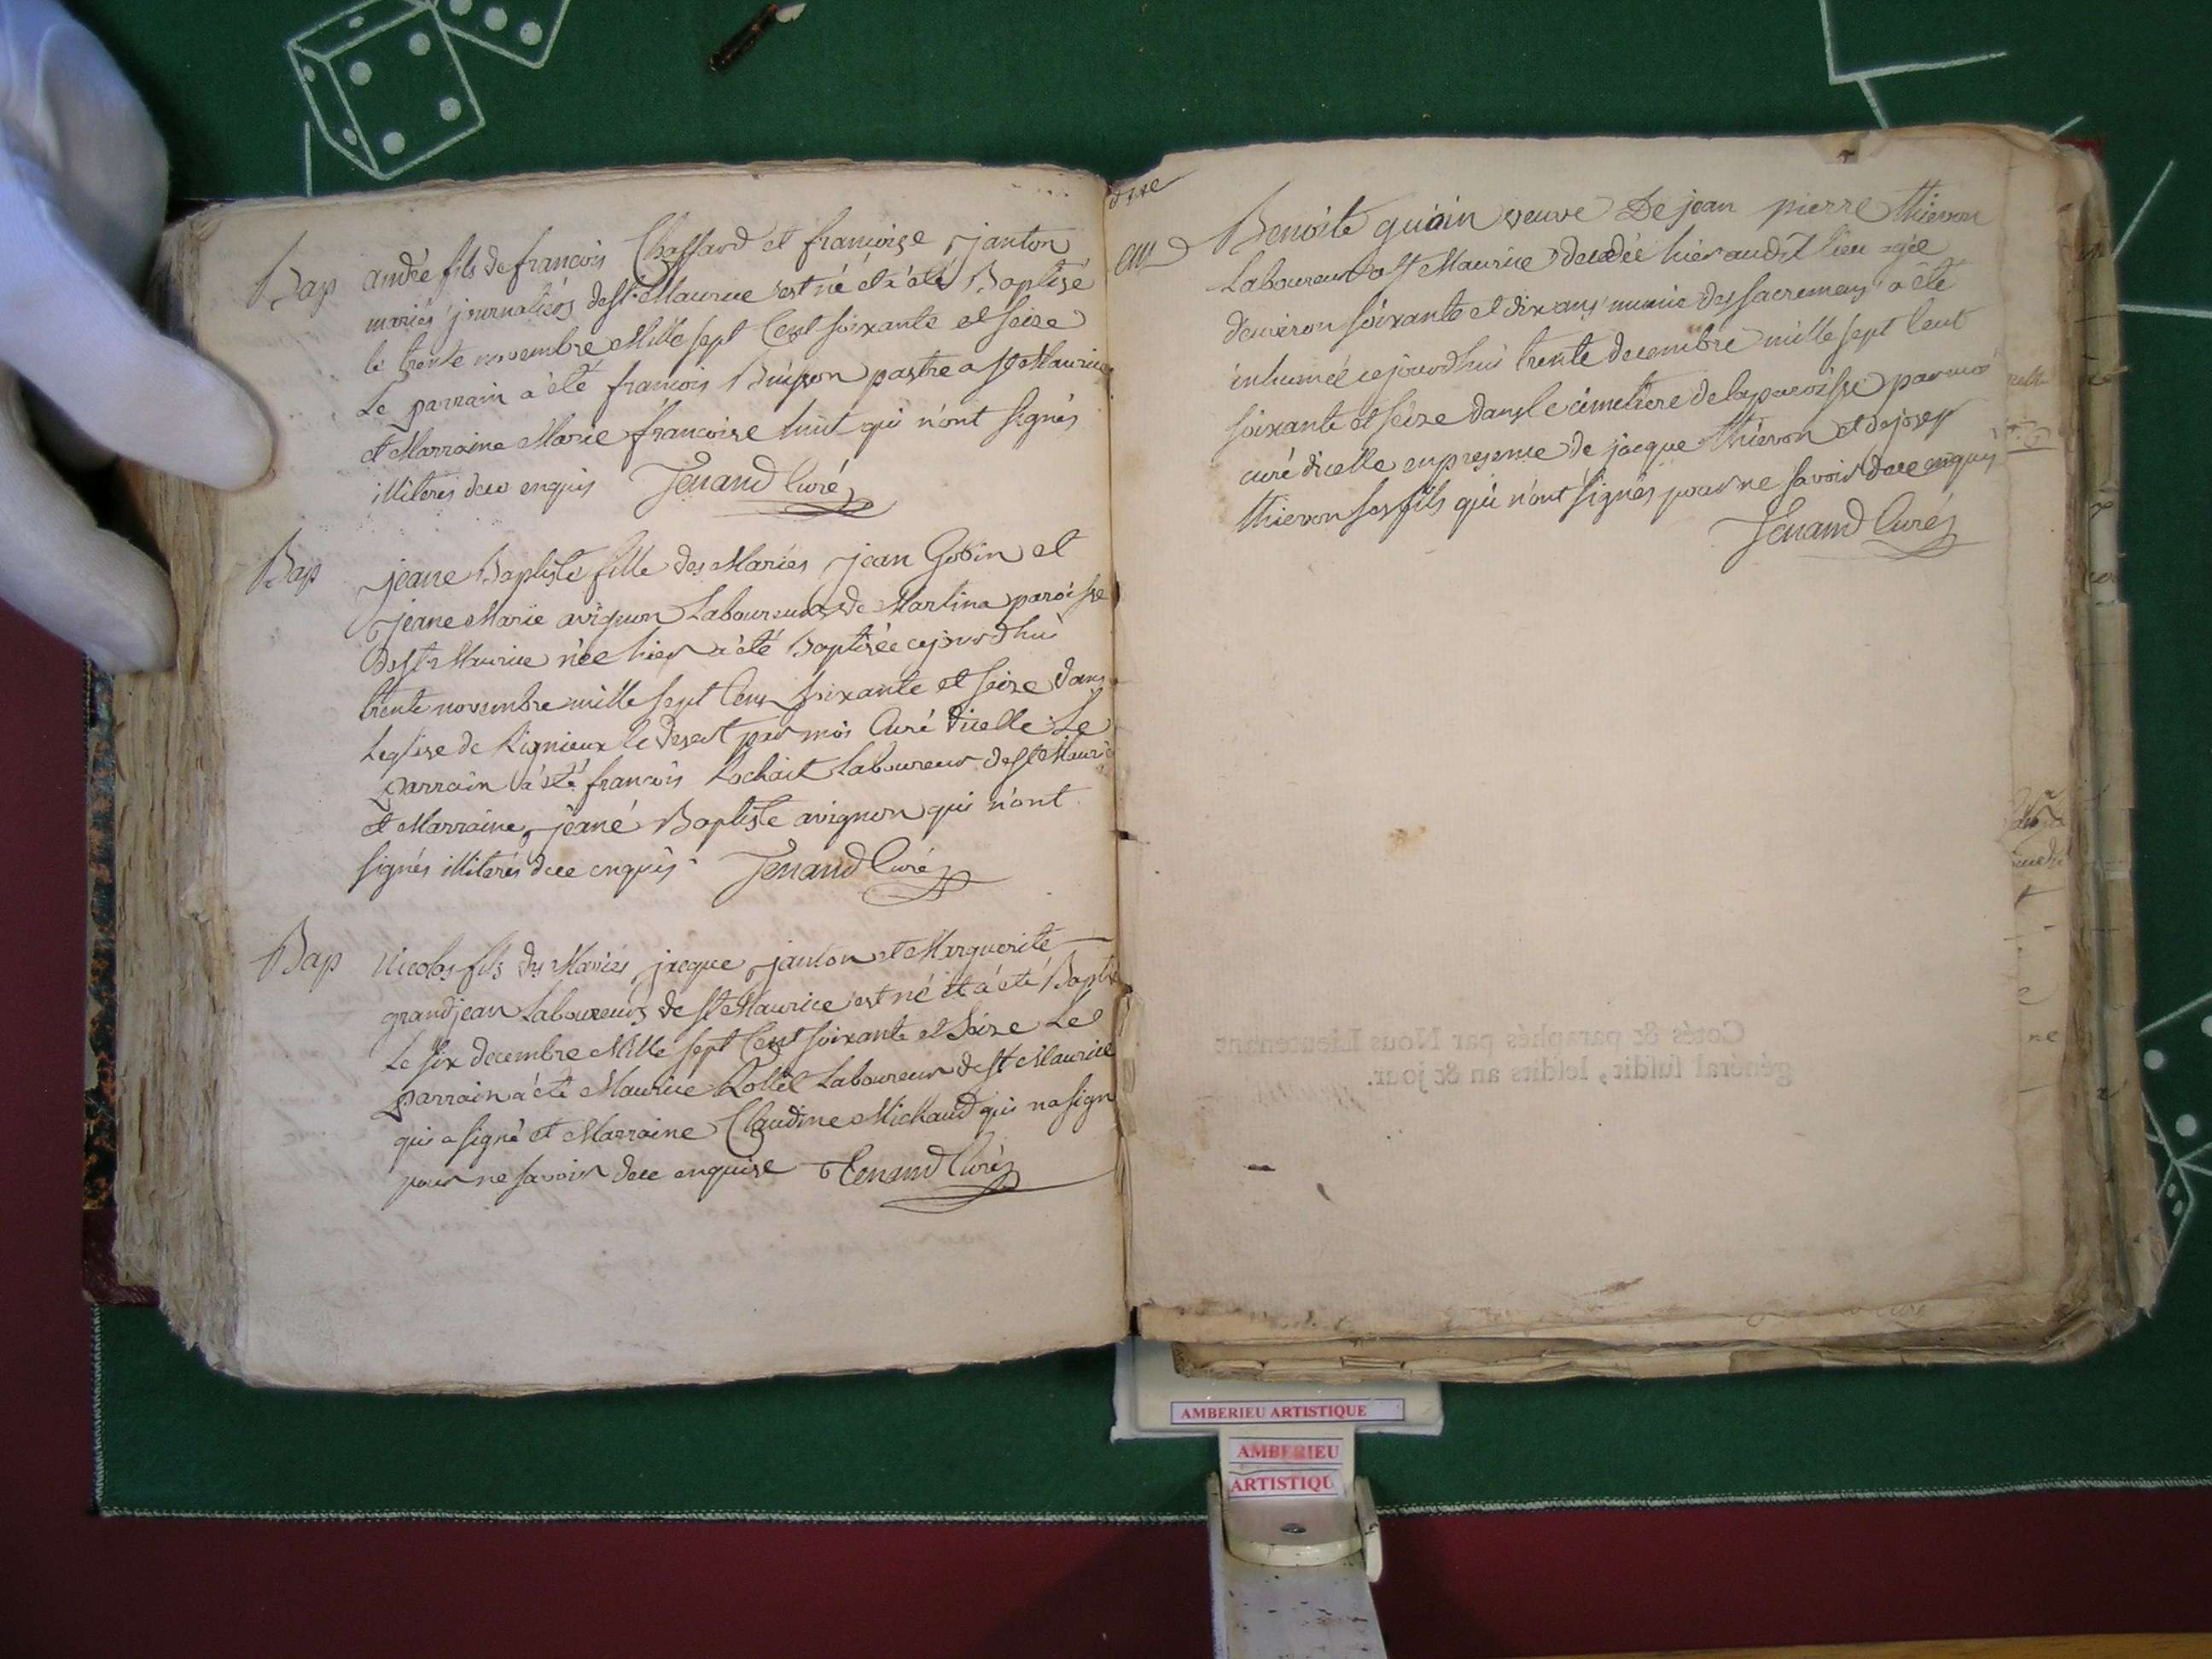 Bap andré fils de francois Chaffard et francoise janton
mariés journaliers de st Maurice est né et a été Baptisé
le trente novembre Mille sept Cent soixante et seise
Le parrain a été francois Buisson pastre a st Maurice
et Marraine Marie francoise huit qui n'ont signés
illiterés dece enquis Tenand Curé
Bap jeane Baptiste fille des Mariés jean Gobin et
jeane Marie avignon Laboureurs de Martina paroisse
de st Maurice née hier a été Baptisée cejourdhui
trente novembre mille sept Cens soixante et seise dans
Leglise de Rignieux le desert par moi Curé dicelle Le
parrain a été francois Lochait Laboureur de st Mauri
et Marraine jeané Baptiste avignon qui n'ont
signés illiterés dece enquis Tenand Curé
Bap nicolas fils des Mariés jacque janton et Marguerite
grandjean Laboureurs de st Maurice est né et a été Baptis
Le six decembre Mille sept Cent soixante et Seise Le
parrain a été Maurice Laboureur de st Maurice
qui a signé et Marraine Claudine Michaud qui na sign
pour ne savoir dece enquise Tenand Curé
Benoite guoin veuve De jean pierre thievon
Laboureur a st Maurice decedée hier audit lieu agée
denviron soixante et dix ans munie des sacremens a été
inhumée cejourdhui trente decembre mille sept Cent
soixante et seise dans le cimetiere de la paroisse par moi
curé dicelle en presence de jacque thievon et de josep
thievon ses fils qui n'ont signés pour ne savoir dece enquis
Tenand Curé
Cotés & paraphés par Nous Lieutenant
général susdit, lesdits an & jour.
AMBERIEU ARTISTIQUE
AMBERIEU
ARTISTIQU